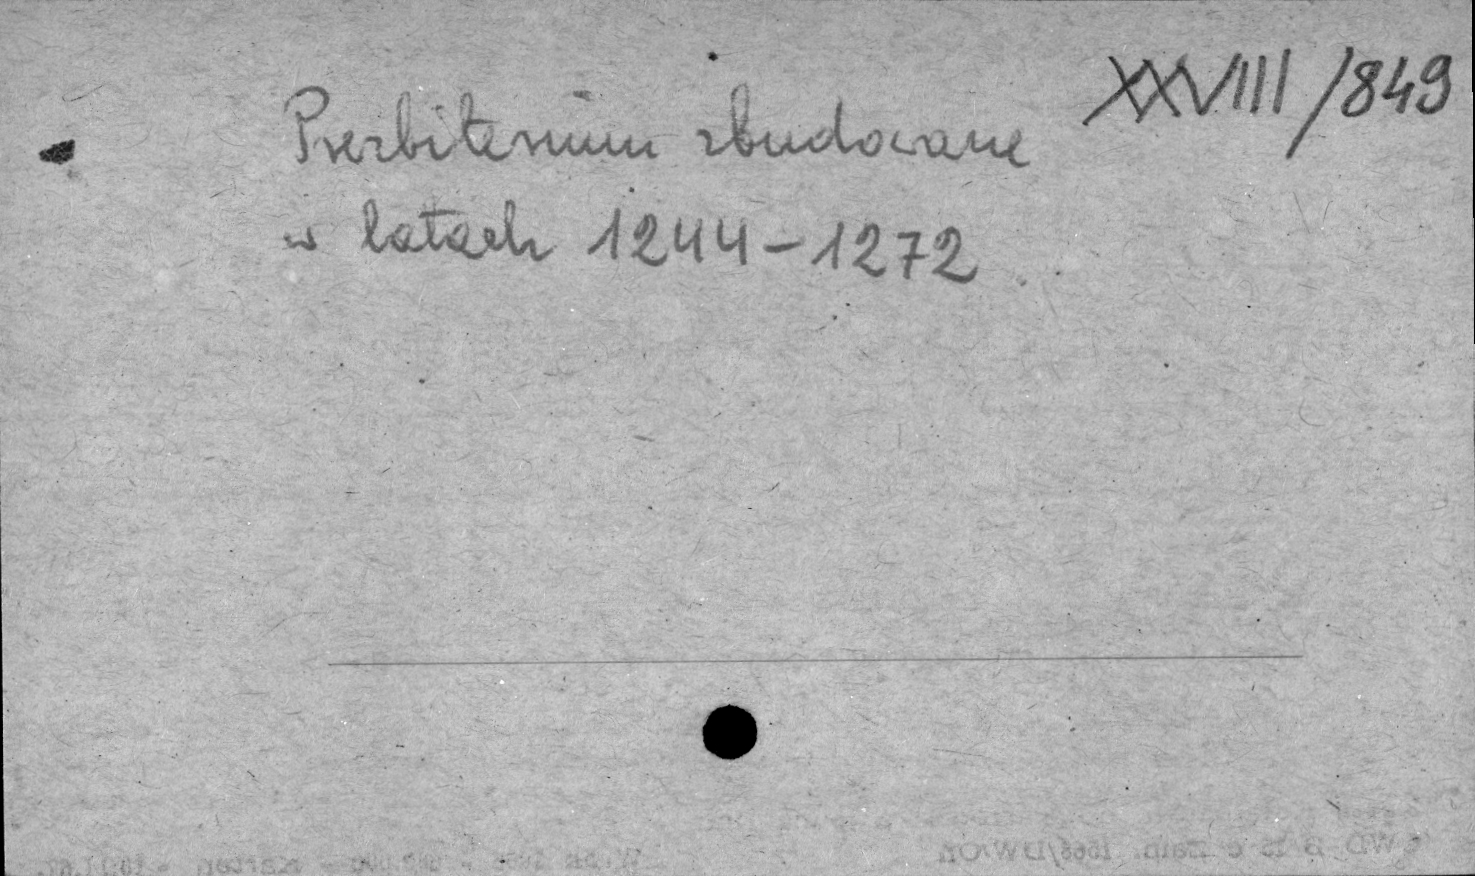 XXVIII/849
Prezbiterium zbudowane
w latach 1244-1272